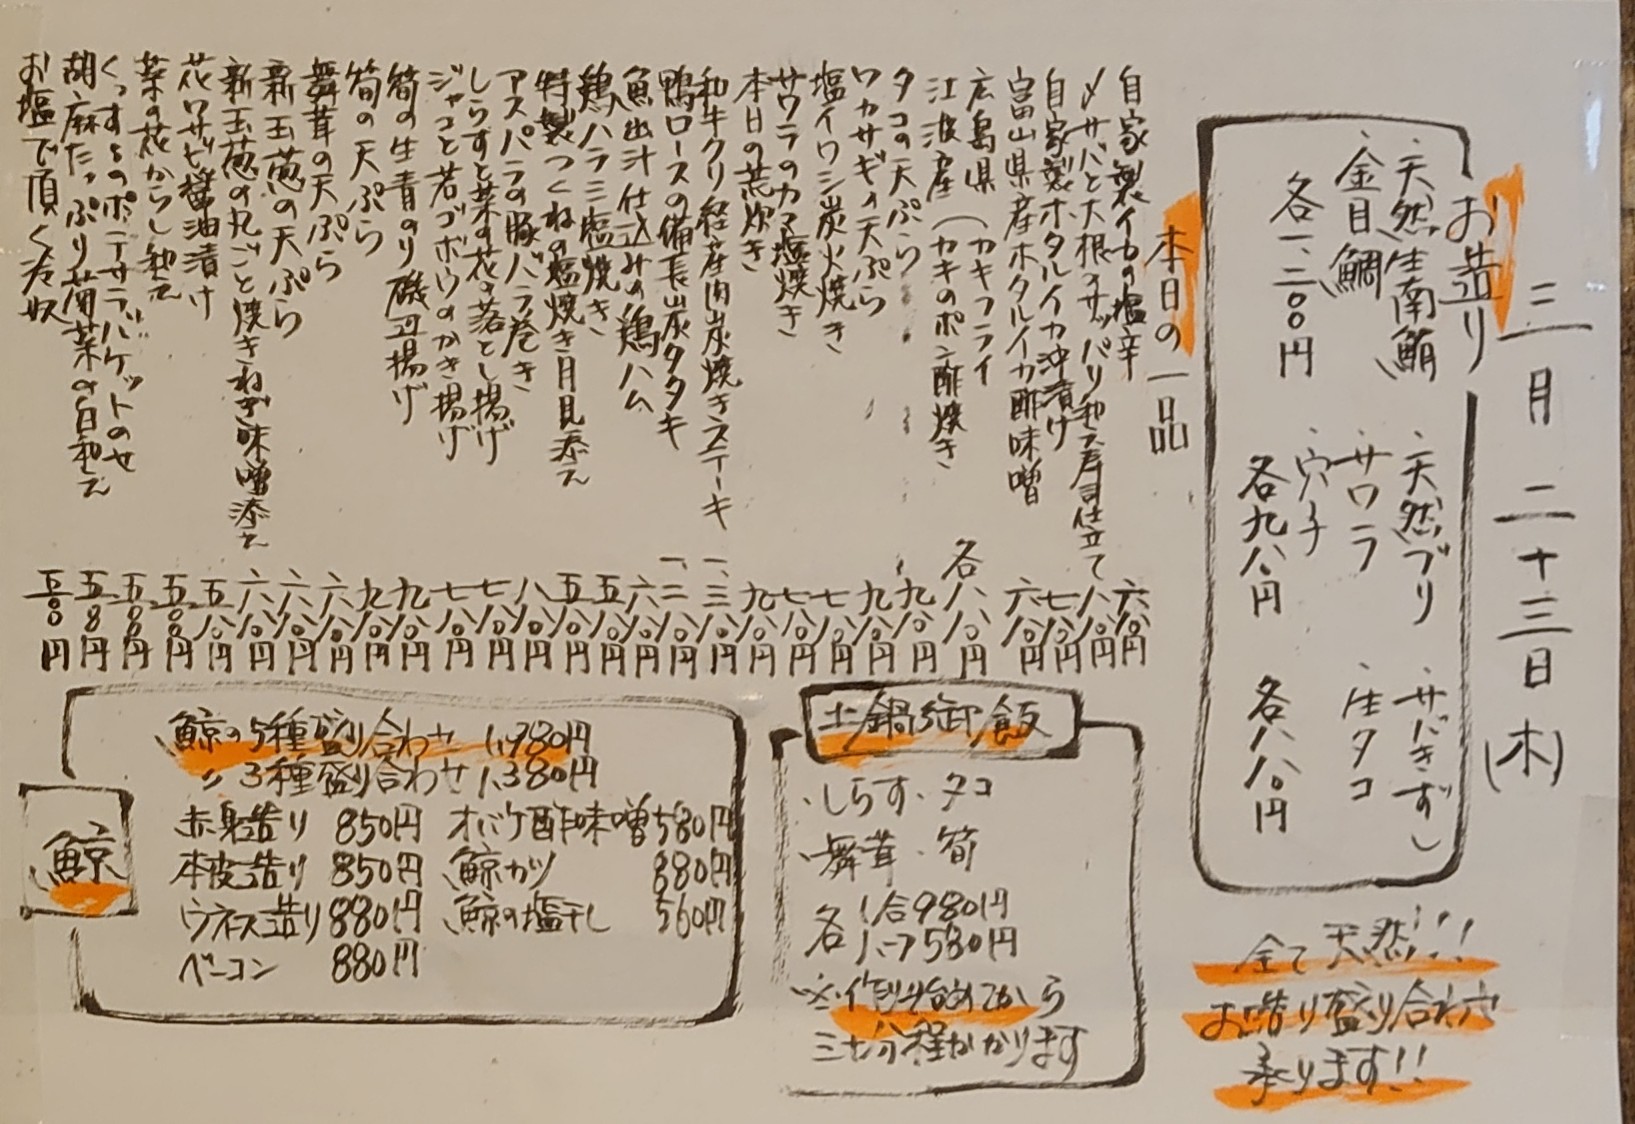 三月二十三日(木)
お造り
・天然生南鮪
・金目鯛
各一、二〇〇円
・天然ブリ
・サワラ
・穴子
各九八〇円
・サバきずし
・生タコ
各八八〇円
全て天然!!!
お造り盛り合わせ
承ります!!
本日の一品
自家製イカの塩辛 六八〇円
〆サバと大根のサッパリ和え寿司仕立て 八八〇円
自家製ホタルイカ沖漬け 七八〇円
富山県産ホタルイカ酢味噌 六八〇円
広島県(カキフライ
江波産(カキのポン酢焼き 各八八〇円
タコの天ぷら 九八〇円
ワカサギの天ぷら 九八〇円
塩イワシ炭火焼き 七八〇円
サワラのカマ塩焼き 七八〇円
本日の荒炊き 九八〇円
和牛クリ経産肉炭焼きステーキ 一、三八〇円
鴨ロースの備長炭タタキ 一、二八〇円
魚出汁仕込みの鶏ハム 六八〇円
鶏ハラミ塩焼き 五八〇円
特製つくねの塩焼き月見添え 五八〇円
アスパラの豚バラ巻き 八八〇円
しらすと菜の花の落とし揚げ 七八〇円
ジャコと若ゴボウのかき揚げ 七八〇円
筍の生青のり磯辺揚げ 九八〇円
筍の天ぷら 九八〇円
舞茸の天ぷら 六八〇円
新玉葱の天ぷら 六八〇円
新玉葱の丸ごと焼きねぎ味噌添え 六八〇円
花ワサビ醤油漬け 五八〇円
菜の花からし和え 五八〇円
くんすものポテサラバケットのせ 五八〇円
胡麻たっぷり菊菜の白和え 五八〇円
お塩で頂く冷奴 五〇〇円
土鍋御飯
・しらす・タコ
・舞茸・筍
各 1合980円
ハーフ530円
※作り始めてから
三十分程かかります
鯨
鯨の5種盛り合わせ 1,980円
〃3種盛り合わせ 1,380円
赤身造り 850円 オバケ酢味噌 580円
本皮造り 850円 鯨カツ 880円
ウネス造り 880円 鯨の塩干し 560円
ベーコン 880円